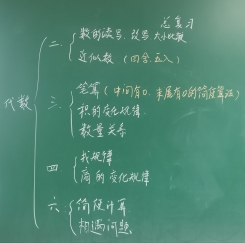 总复习
代数
二. 数的读写. 改写 大小比较
近似数 (四舍五入)
三. 笔算 (中间有0. 末尾有0的简便算法)
积的变化规律
数量关系
四 找规律
商的变化规律
六. 简便计算
相遇问题